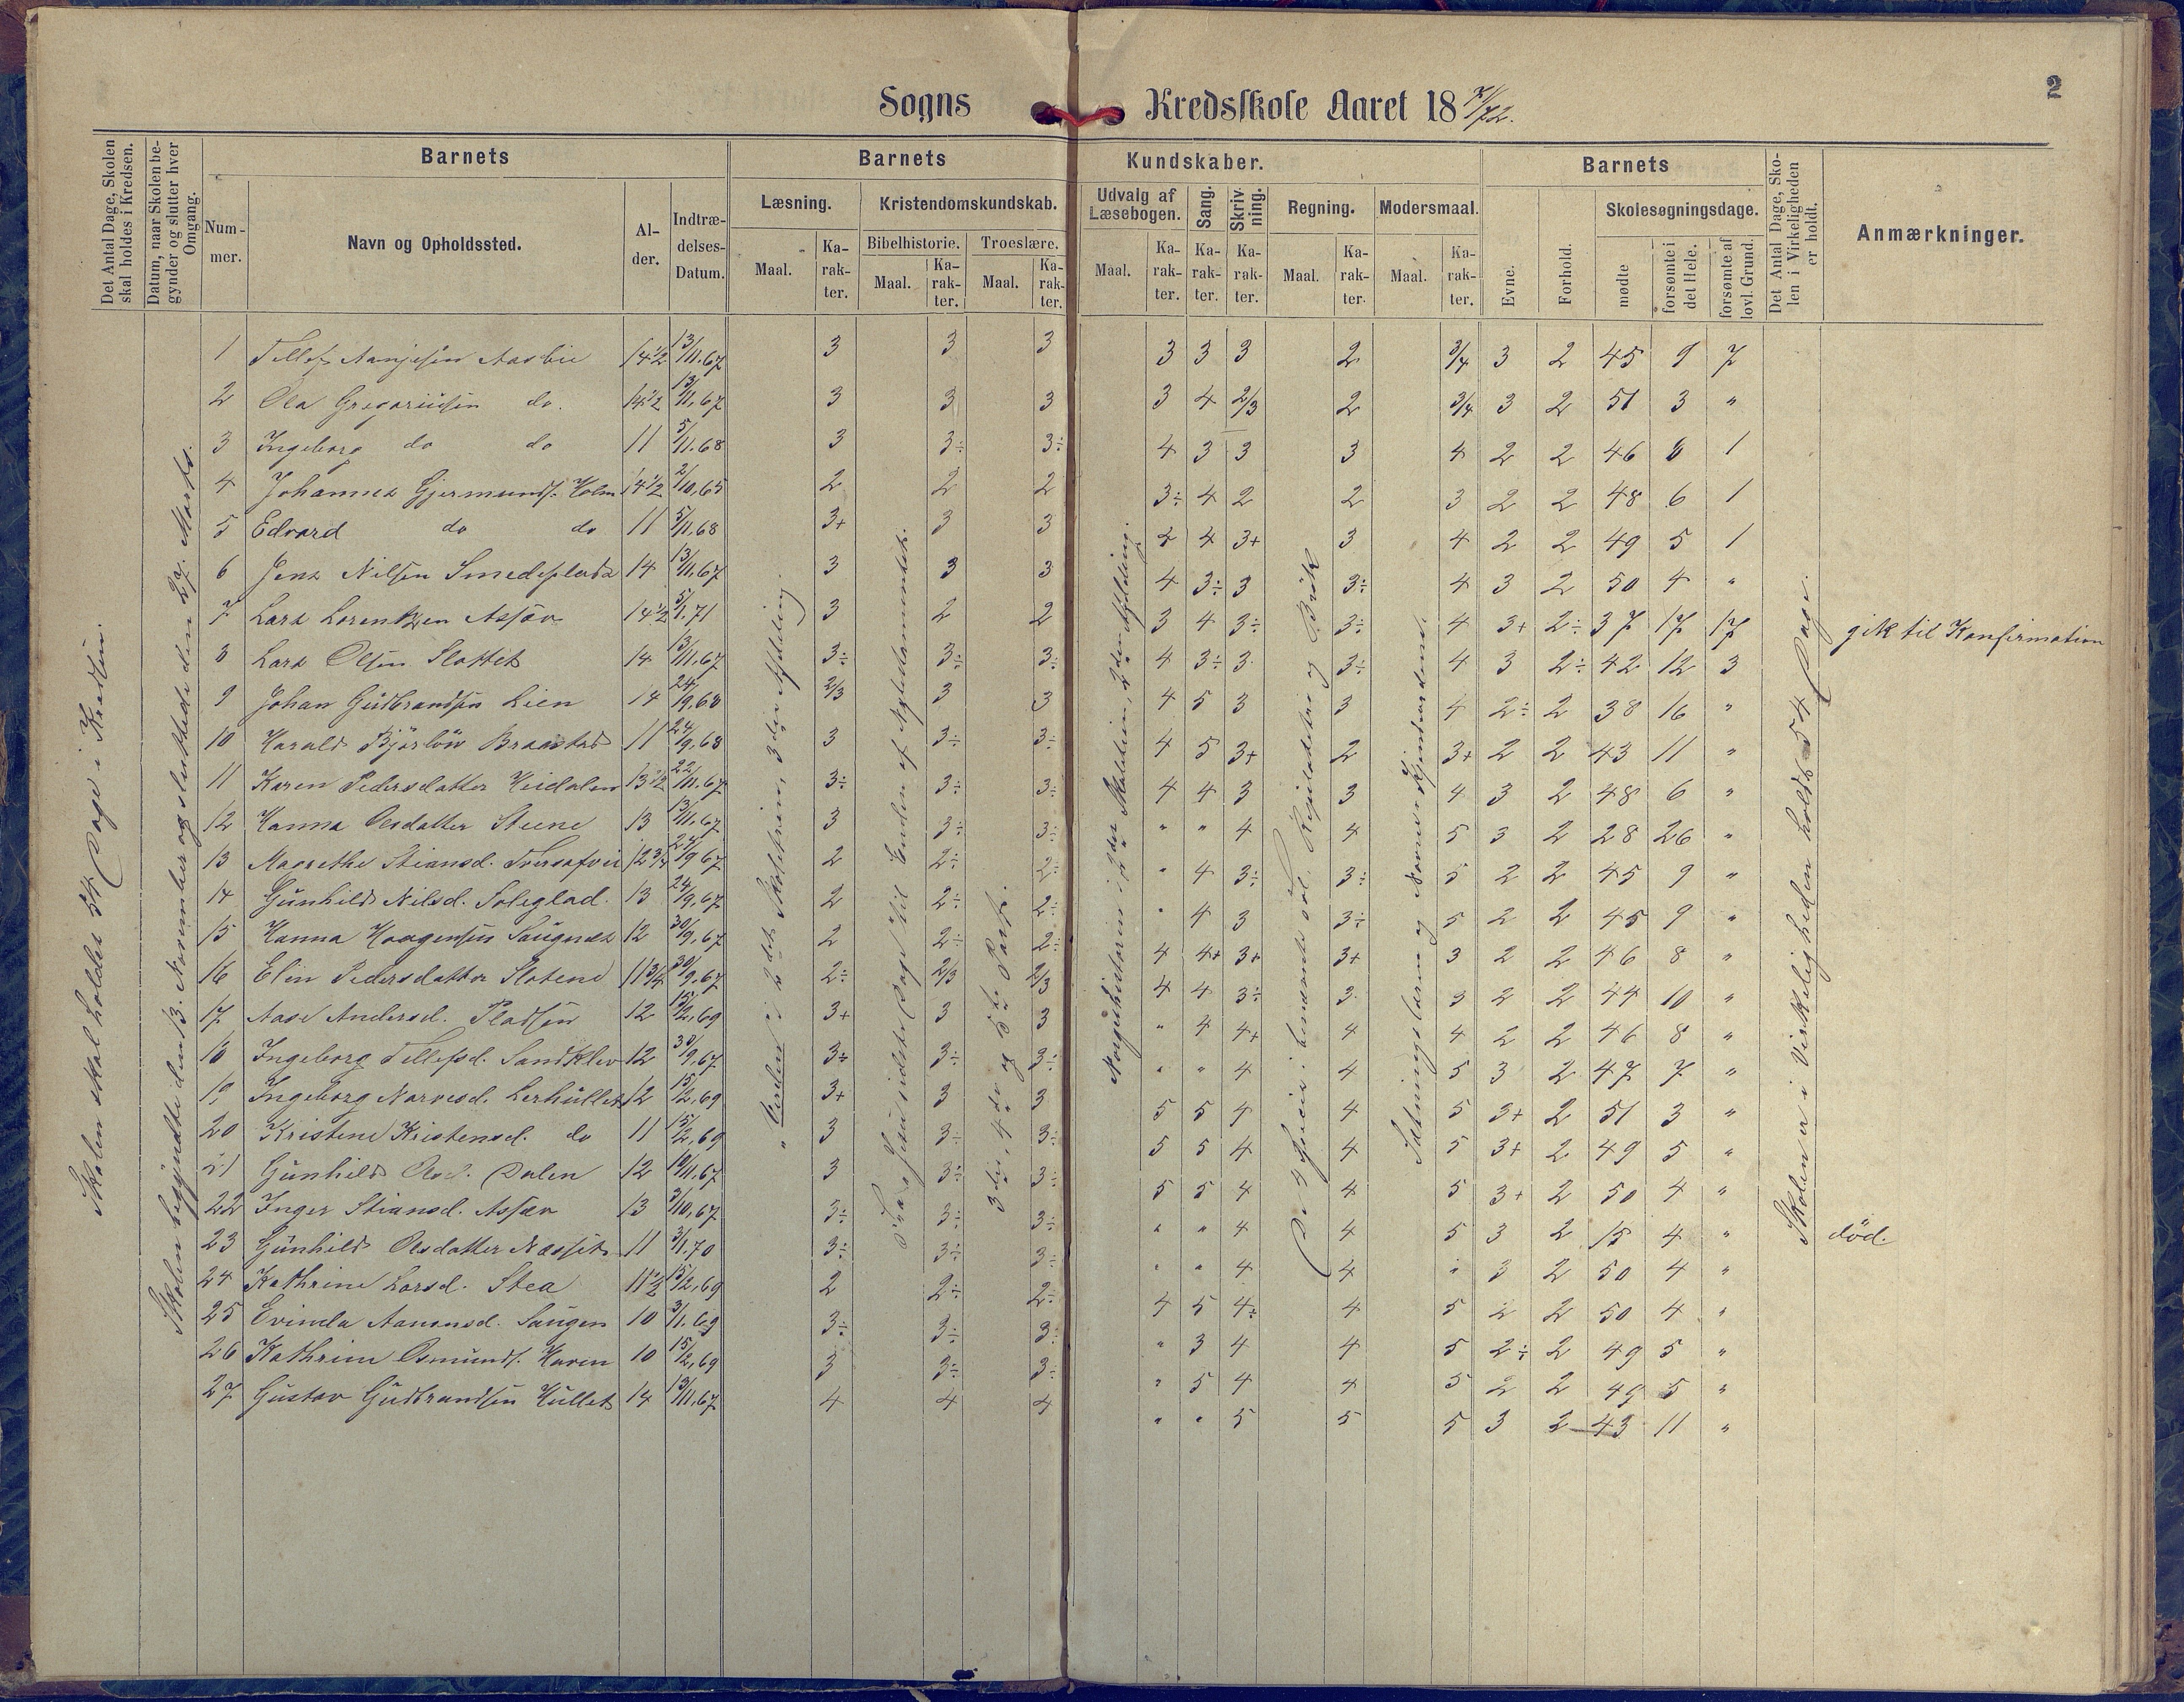 2
Sogns Kredsskole Aaret 18 71/72.
Det Antal Dage, Skolen skal holdes i Kredsen.
Datum, naar Skolen begynder og slutter hver Omgang.
Barnets
Nummer.
Navn og Opholdssted.
Alder.
Indtrædelses-Datum.
Barnets Kundskaber.
Læsning.
Maal.
Karakter.
Kristendomskundskab.
Bibelhistorie.
Maal.
Karakter.
Troeslære.
Maal.
Karakter.
Udvalg af Læsebogen.
Maal.
Karakter.
Sang.
Karakter.
Skrivning.
Karakter.
Regning.
Maal.
Karakter.
Modersmaal.
Maal.
Karakter.
Barnets
Evne.
Forhold.
Skolesøgningsdage.
mødte
forsømte i det Hele.
forsømte af lovl. Grund.
Det Antal Dage, Skolen i Virkeligheden er holdt.
Anmærkninger.
Skolen skal holdes 54 Dage i Kredsen.
Skolen begyndte den 13. November og sluttede den 27. Marts.
"Verden" i 2det Skoletrin, 3die Afdeling.
Fra Jesu sidste Dage til Enden af Nytestamentet.
3die, 4de og 5te Part.
Norgeshistorien i 2det Skoletrin, 2den Afdeling.
De 4 Specier i benævnte Tal. Brøk
Skolen er i Virkeligheden holdt 54 Dage.
1 Tellef Aanjesen Aasbie 14½ 13/11.67 3 3 3 3 3 3 2 3/4 3 2 45 9 7
2 Ola Gregoriusen do. 14½ 13/11.67 3 3 3 3 4 2/3 2 3/4 3 2 51 3 "
3 Ingeborg do do 11 5/11.68 3 3÷ 3÷ 4 3 3 3 4 2 2 46 8 1
4 Johannes Gjermunds. Holm 14½ 2/10,65 2 2 2 3÷ 4 2 2 3 2 2 48 6 1
5 Edvard do do 11 5/11.68 3+ 3 3 4 4 3+ 3 4 2 2 49 5 1
6 Jens Nilsen Smedsplads 14 13/11,67 3 3 3 4 3÷ 3 3÷ 4 3 2 50 4 "
7 Lars Lorentzen Assæv 14½ 5/1.71 3 2 2 3 4 3÷ 3÷ 4 3+ 2÷ 37 17 17 gik til Konfirmation
8 Lars Olsen Slottet 14 13/11,67 3÷ 3÷ 3÷ 4 3÷ 3 3÷ 4 3 2÷ 42 12 3
9 Johan Gudbrandsen Lien 14 24/9,68 2/3 3 3 4 5 3 3 4 2÷ 2 38 16 "
10 Harald Bjørløv Braastad 11 24/9,68 3 3÷ 3÷ 4 5 3+ 2 3+ 2 2 43 11 "
11 Karen Pedersdatter Heidalen 13½ 22/11.67 3÷ 3÷ 3÷ 4 4 3 3 4 3 2 48 6 "
12 Hanna Olsdatter Steene 13 13/11,67 3 3÷ 3÷ " " 4 4 5 3 2 28 26 "
13 Magrethe Stiansd. 12¾ 24/9 67 2 2÷ 2÷ " 4 3÷ 3÷ 5 2 2 45 9 "
14 Gunhild Nilsd. Soleglad. 13 24/9,67 2 2÷ 2÷ " 4 3 3÷ 5 2 2 45 9 "
15 Hanna Haagensen Saugnes 12 30/9,67 2 2÷ 2÷ 4 4+ 3+ 3+ 3 2 2 46 8 "
16 Elin Pedersdatter Slotene 11¾ 30/9,67 2÷ 2/3 2/3 4 4 3÷ 3 3 2 2 44 10 "
17 Aase Andersd. Pladsen 12 15/2,69 3+ 3 3 " 4 4+ 4 4 2 2 46 8 "
18 Ingeborg Tellefsd. Sandklev 12 30/9,67 3÷ 3÷ 3÷ " " 4 4 5 3 2 47 7 "
19 Ingeborg Narvesd. Lerhullet 12 15/2,69 3+ 3 3 5 5 4 4 5 3+ 2 51 3 "
20 Kristene Kristensd. do 11 15/2,69 3 3÷ 3÷ 5 5 4 4 5 3+ 2 49 5 "
21 Gunhild Olsd. Dalen 12 10/11,67 3 3÷ 3÷ 5 5 4 4 5 3+ 2 50 4 "
22 Inger Stiansd. Assæv 13 3/10,67 3÷ 3÷ 3÷ " " 4 4 5 3 2 15 4 " død.
23 Gunhild Olsdatter Næsset 11 3/1.70 3÷ 3÷ 3÷ " " 4 4 " 3 2 50 4 "
24 Kathrine Larsd. Stea 11½ 15/2,69 2 2÷ 2÷ 4 5 4÷ 4 5 2 2 50 4 "
25 Evinda Aanonsd. Saugen 10 3/1.69 3÷ 3÷ 3÷ " 3 4 4 5 2÷ 2 49 5 "
26 Kathrine Osmunds. Haven 10 15/2,69 3 3÷ 3÷ " 5 4 4 5 2 2 49 5 "
27 Gustav Gudbrandsen Hullet 14 13/11,67 4 4 4 " " 5 5 5 3 2 43 11 "